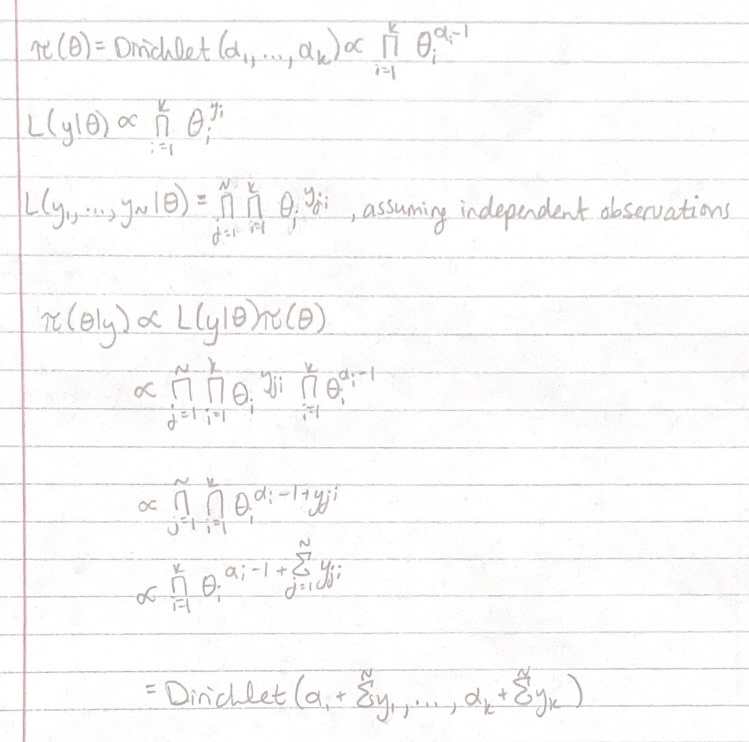 π(θ) = Dirichlet (α₁, ..., αₖ) ∝ ∏ᵢ₌₁ᵏ θᵢ^(αᵢ-1)
L(y|θ) ∝ ∏ᵢ₌₁ᵏ θᵢ^(yᵢ)
L(y₁, ..., y_N|θ) = ∏ⱼ₌₁ᴺ ∏ᵢ₌₁ᵏ θᵢ^(yⱼᵢ) , assuming independent observations
π(θ|y) ∝ L(y|θ)π(θ)
∝ ∏ⱼ₌₁ᴺ ∏ᵢ₌₁ᵏ θᵢ^(yⱼᵢ) ∏ᵢ₌₁ᵏ θᵢ^(αᵢ-1)
∝ ∏ⱼ₌₁ᴺ ∏ᵢ₌₁ᵏ θᵢ^(αᵢ-1+yⱼᵢ)
∝ ∏ᵢ₌₁ᵏ θᵢ^(αᵢ-1+∑ⱼ₌₁ᴺ yⱼᵢ)
= Dirichlet (α₁ + ∑ᴺ y₁, ..., αₖ + ∑ᴺ yₖ)